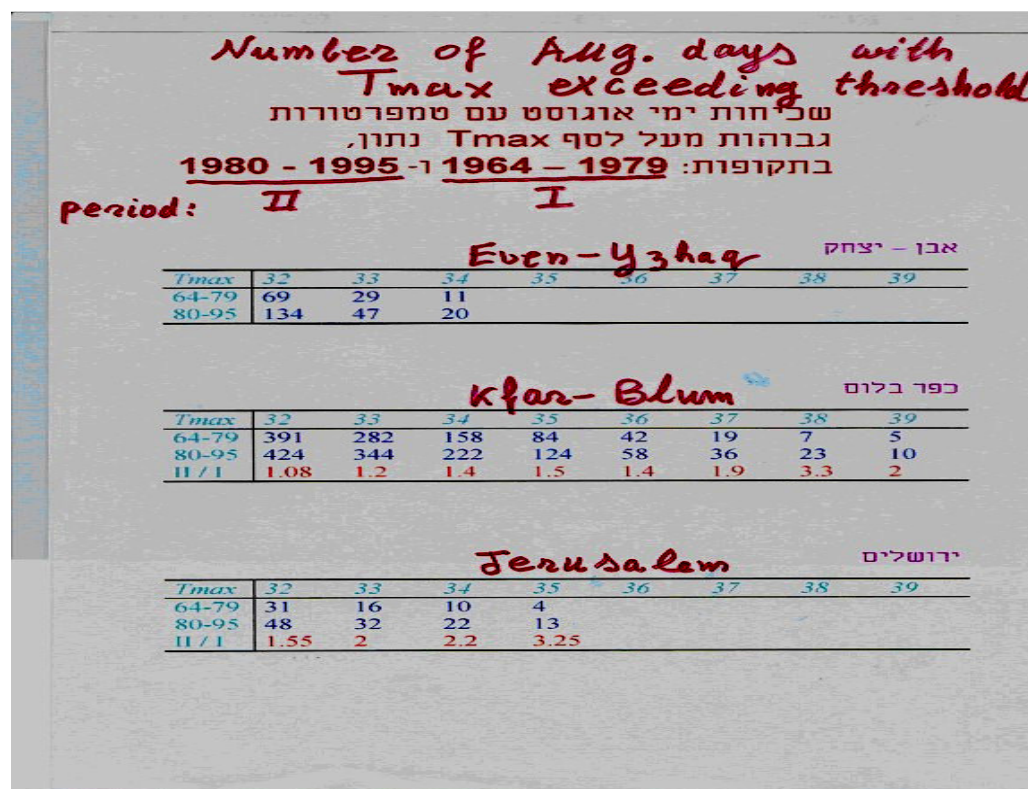 Number of Aug. days with
Tmax exceeding threshold
שכיחות ימי אוגוסט עם טמפרטורות
גבוהות מעל לסף Tmax נתון,
בתקופות: 1964 – 1979 ו- 1980 - 1995
period: II I
Even-Yzhaq אבן – יצחק
Tmax 32 33 34 35 36 37 38 39
64-79 69 29 11
80-95 134 47 20
Kfar-Blum כפר בלום
Tmax 32 33 34 35 36 37 38 39
64-79 391 282 158 84 42 19 7 5
80-95 424 344 222 124 58 36 23 10
II / I 1.08 1.2 1.4 1.5 1.4 1.9 3.3 2
Jerusalem ירושלים
Tmax 32 33 34 35 36 37 38 39
64-79 31 16 10 4
80-95 48 32 22 13
II / I 1.55 2 2.2 3.25